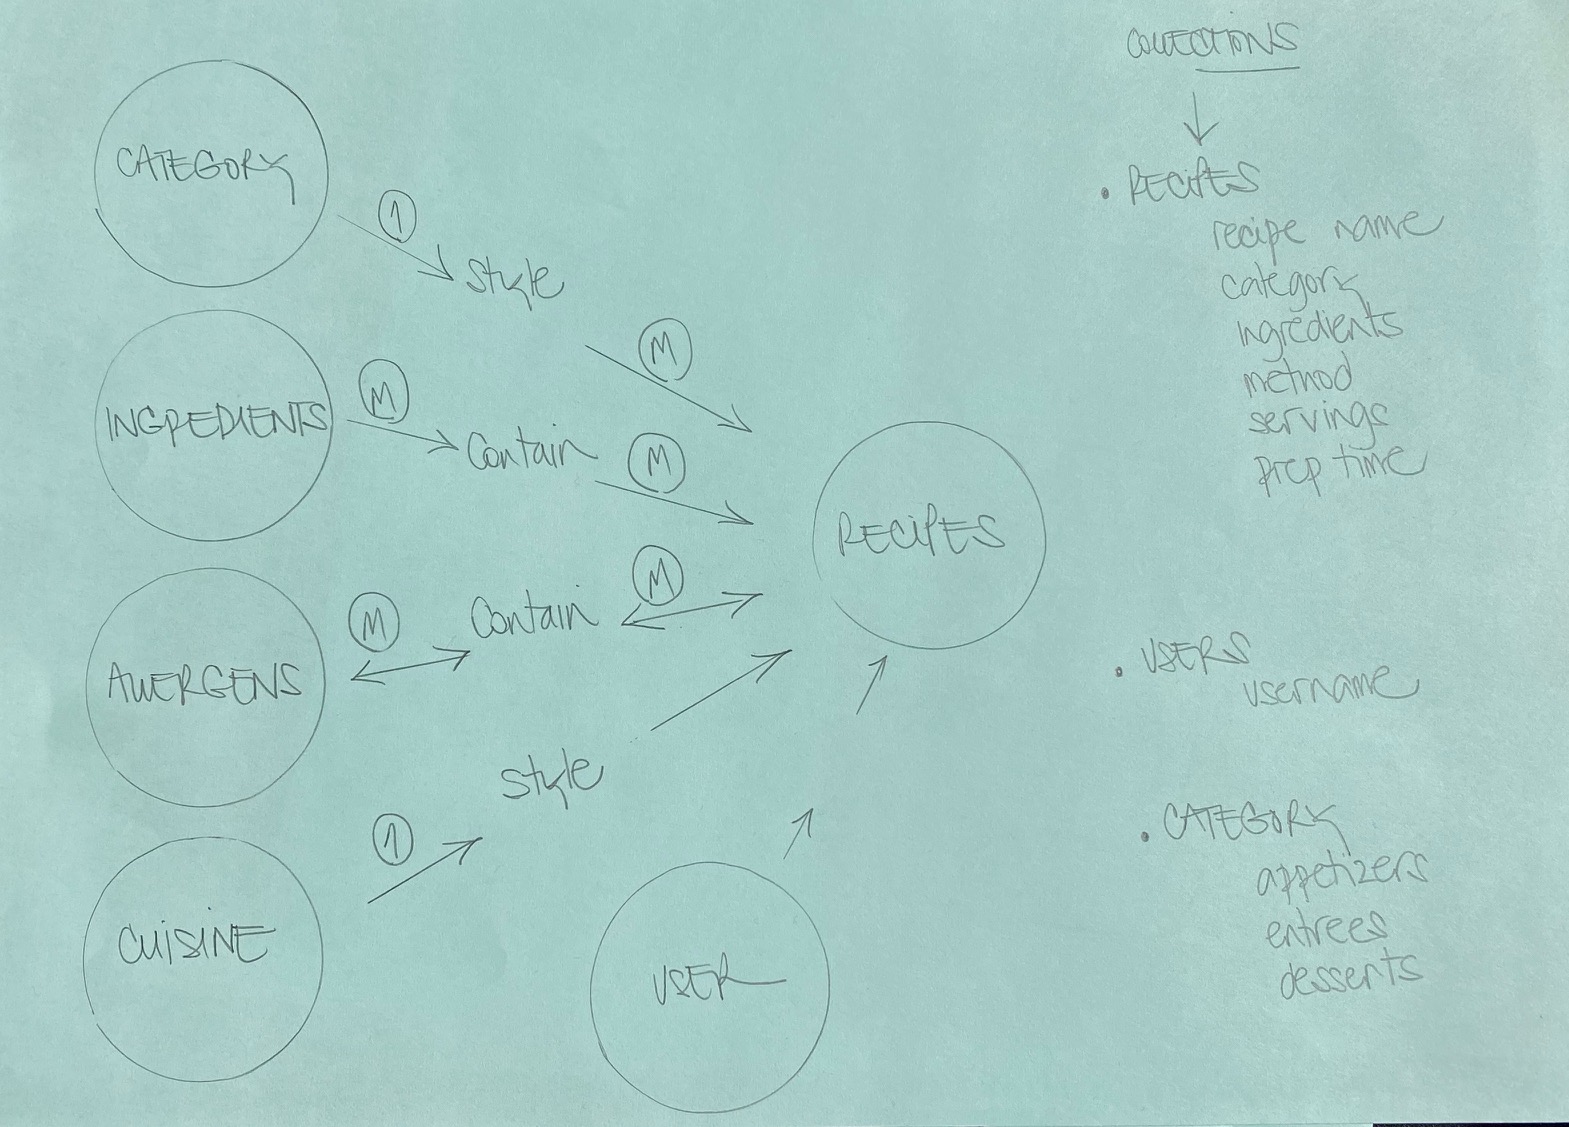 CATEGORY
1
style
M
INGREDIENTS
M
Contain
M
RECIPES
ALLERGENS
M
Contain
M
style
1
CUISINE
USER
COLLECTIONS
• RECIPES
recipe name
category
ingredients
method
servings
prep time
• USERS
username
• CATEGORY
appetizers
entrees
desserts